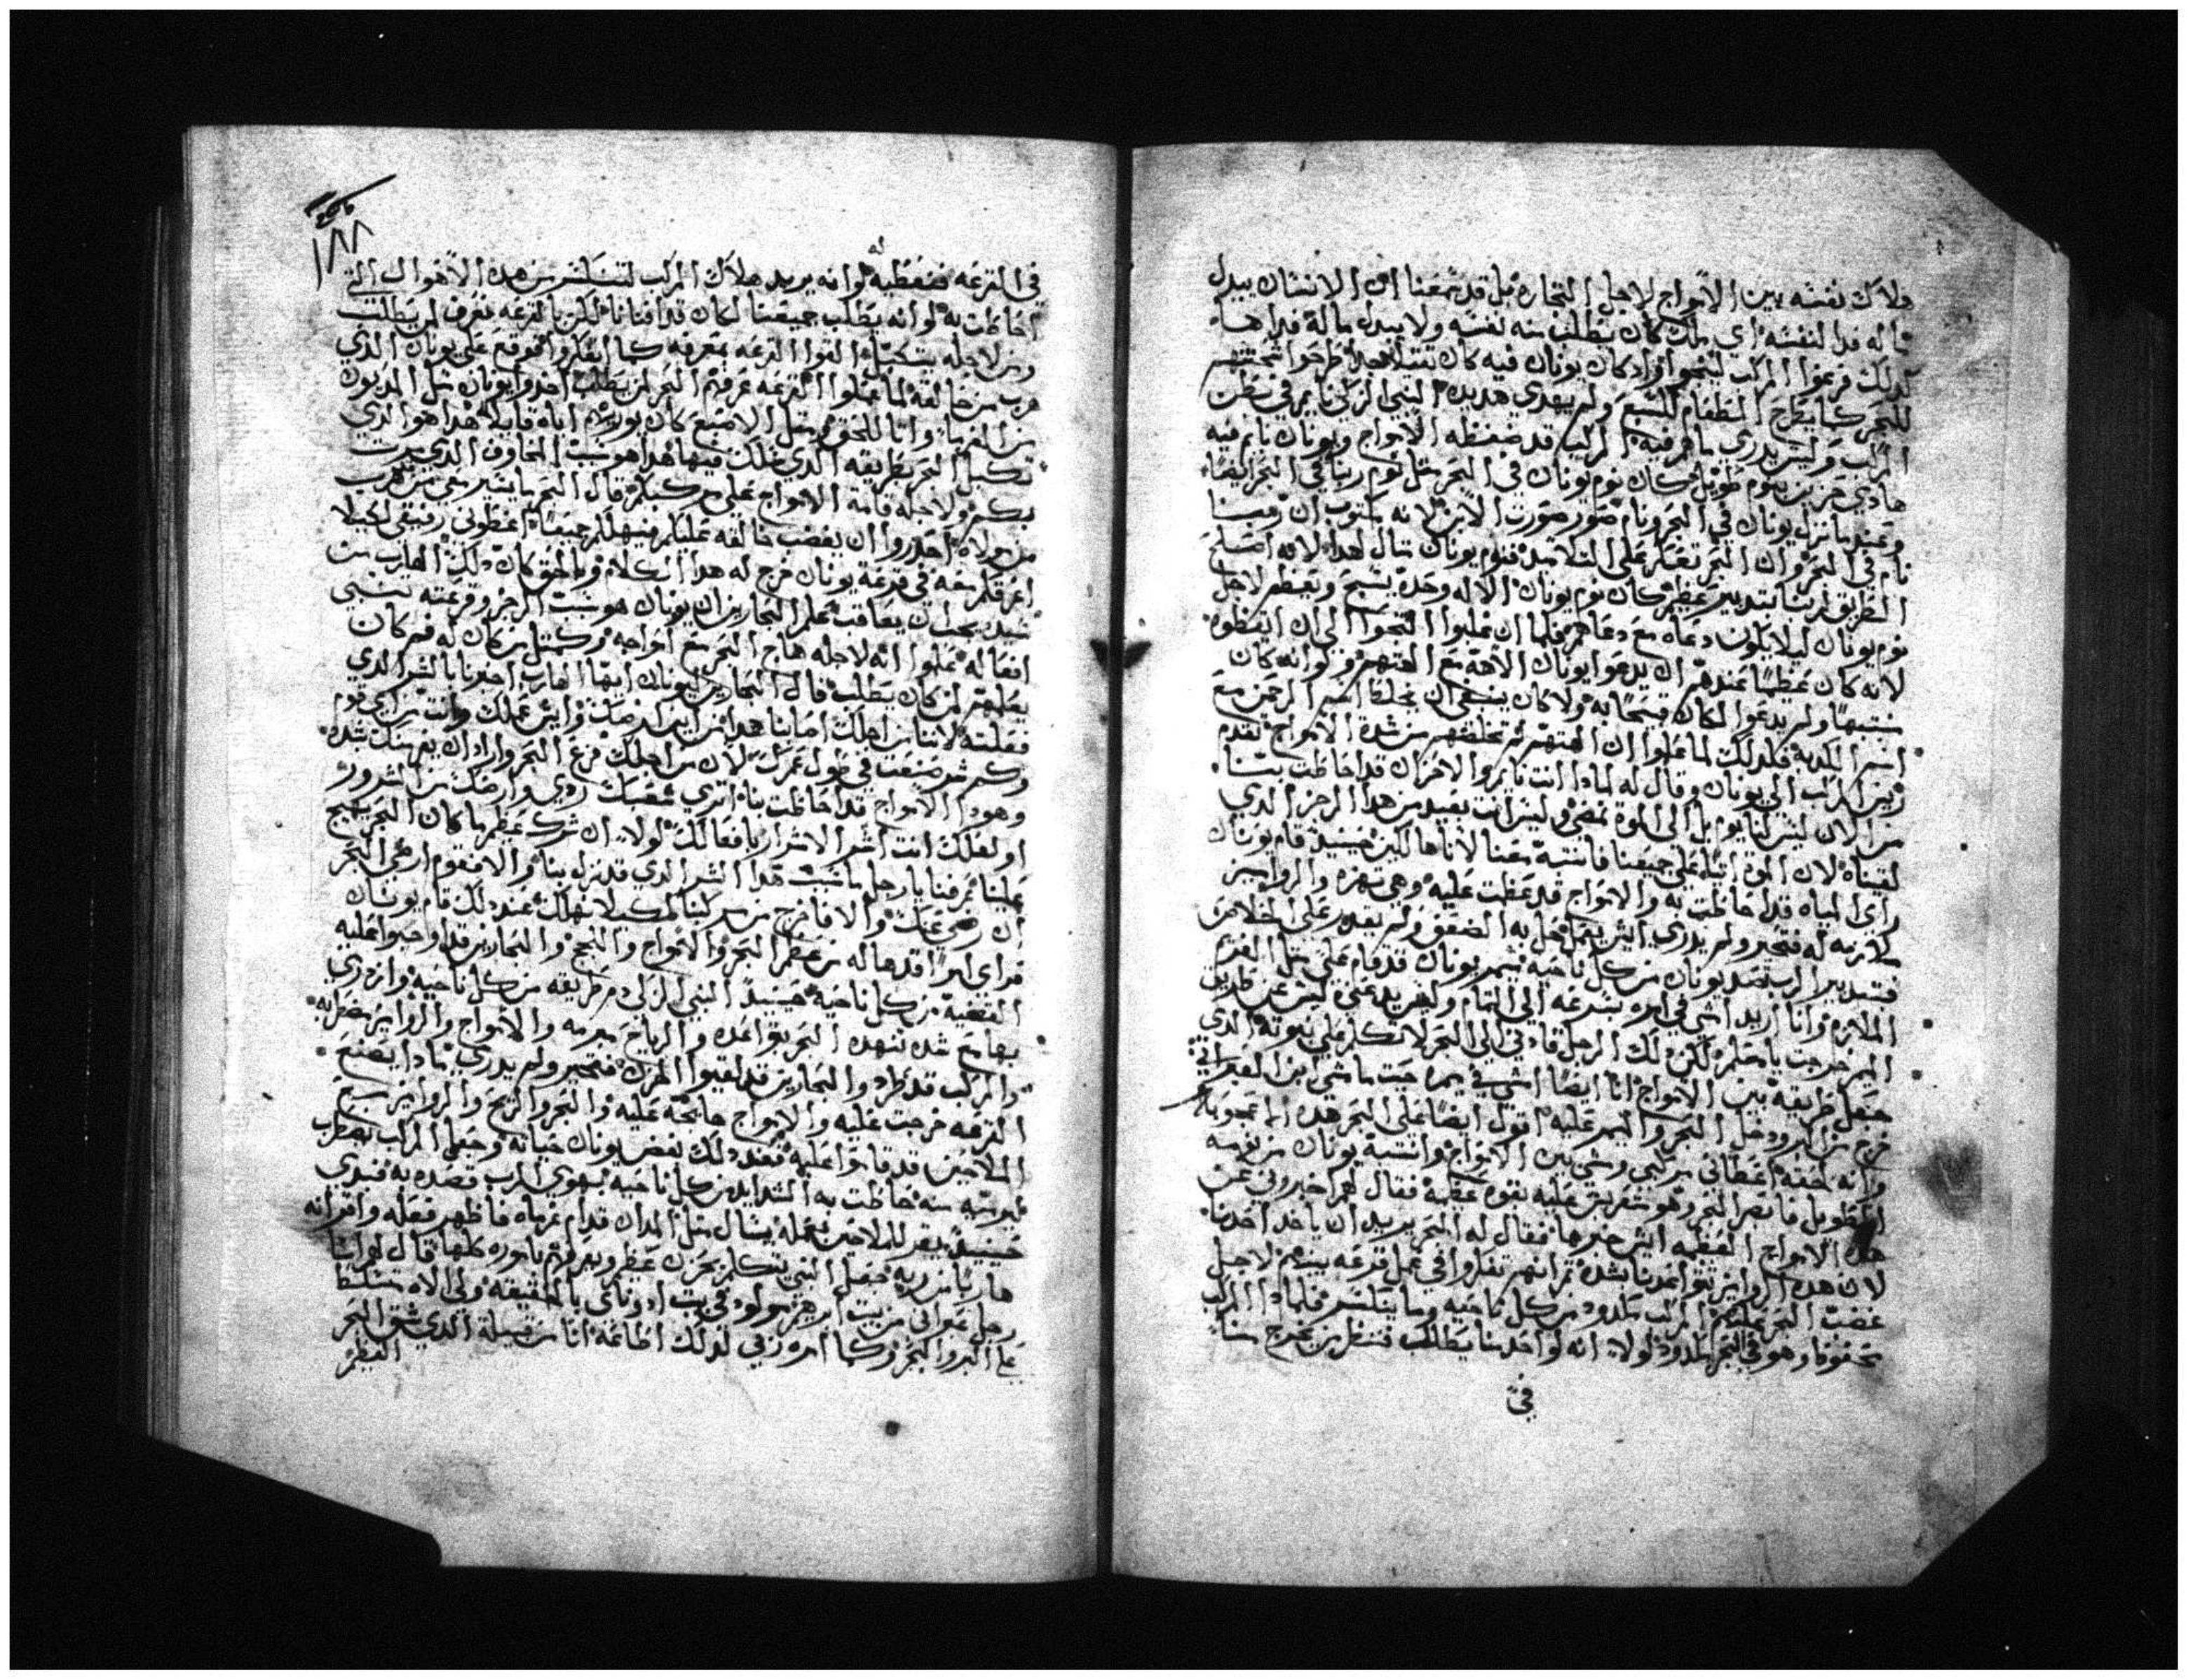 هلاك نفسه بين الامواج لاجل التجاره بل قد سمعنا ان الانسان يبدل
ماله فدا لنفسه اي ملك كان يطلب منه نفسه ولا يبدل ماله فداها
لدلك فرغوا المركب لينجوا اواد كان يونان فيه كان تتبلا هجدا طرحوا امتعتهم
للبحر كما يطرح الطعام للسبع ولم يهدي هديده النبي الزكي نايم في بطن
المركب وليس يدري ما هم فيه المركب قد ضغطه الامواج ويونان نايم فيه
هادي حزين بنوم طويل فكان نوم يونان في البحر مثل نوم ربنا في البحر ايضا
وعندما نزل يونان في البحر ونام صور صورت الابن لانه مكتوب ان ربنا
نام في البحر وان البحر تعكر على التلاميد فنوم يونان مثال لهدا لانه اصلح
الطريق لربنا بتدبير عظيم كان نوم يونان الاله وحده يسبح ويعظم لاجل
نوم يونان ليلا يكون دعاه مع دعاهم فلما ان عملوا التجوا الى ان ايقظوه
لانه كان عظيما عندهم ان يدعوا يونان الاهه مع الهتهم ولو انه كان
منتبها ولم يدعوا لكان قبيحا به ولا كان ينبغي ان يخلط اسم الرحمن مع
اسم الكدبه فلدلك لما علموا ان الهتهم لم تخلصهم من شدة الامواج تقدم
ريس المركب الى يونان وقال له لمادا انت نايم والاحزان قد احاطت بنا
من الان ليس لنا يوم بل الى الموة نمضي وليس انت بعيد من هدا الرجز الدي
لقيناه لان الموة اتياه على جميعنا فانتبه معنا لاننا هالكين حينيد قام يونان
راى المياه قد احاطت به والامواج قد غطت عليه وهي تهزه والزوابيع
ملازمه له فتحير ولم يدري ايش يعمل فحل به الضعف ولم يقدر على الخلاص
فبتدبير الرب قصد يونان من كل ناحيه نهم يونان قد قام على مثل الغريم
الملازم وانا اريد امشي في امره بسرعه الى التمام ولهم يدعني ليس عن طريق
اليم خرجت يا معلم لكن دلك الرجل قادني الى البحر لاتكلم على نبوته الدي
جعل طريقه بين الامواج انا ايضا امشي في يمه حيت ما مشي ابن العبراني
خرج من البر ودخل البحر واليم عليه اقول ايضا على البحر هده العجوبه
وانه لحقه اعطاني مركبي ومشي بين الامواج وانتبه يونان من نومه
الطويل فابصر البحر وهو متغرين عليه بقوه عظيه فقال لهم اخبروني عن
هده الامواج العظيمه ايش خبرها فقال له البحر يريد ان ياخد احدنا
لان هده الزوابيع تواعدنا بشده تم انهم تفكروا في عمل قرعه بينهم لاجل
غضب البحر عليهم المركب ملدود من كل ناحيه وما يتكسر فلمادا المركب
محفوظ وهو في البحر ملدود لولا انه لواحد منا يطلب فننظر من يخرج منا
في
١٨٨
في القرعه فنعطيه له لو انه يريد هلاك المركب لتنكسر من هده الاهوال التي
احاطت به لو انه يطلب جميعنا لكان قد افنانا لكن بالقرعه نعرف لمن يطلب
ومن لاجله يتنكيل القوا القرعه بمعرفه كما افتكروا فوقع على يونان الدي
هرب من خالقه لما عملوا القرعه عرفهم البحر لمن يطلب اخدوا يونان مثل المديون
من الغربا وانا للحق مثل الاصبع كان يوريهم اياه قايلا هدا هو الدي
تكبل البحر بطريقه الدي سلك فيها هدا هو سبب المخاوف الدي صرت
بكم ولاجله قامة الامواج على مركبكم قال اليم ما يتيرني من هرب
من مولاه احدروا ان يغضب خالقه عليكم فيهلكم جميعا اعطوني رفيقي لكيلا
اغرقكم معه في قرعة يونان خرج له هدا الكلام وبالحق كان دلك الهارب من
سيده يجب ان يعاقب علم البحارين ان يونان هو سبب الرجز وقرعته تنبي
افعاله علموا انه لاجله هاج البحر مع امواجه وكمثل من كان له فم كان
يعلمهم لمن كان يطلب قال البحارين ليونان ايها الهارب اخبرنا بالشر الدي
فعلته لاننا من اجلك اصابنا هدا من اين ارضك وايش عملك وانت من اي قوم
وكم شر صنعت في طول عمرك لان من اجلك فزع البحر واراد ان ينهبك بشده
وهودا الامواج قد احاطت بنا اتري شعبك ردي وارضك من الشرور
او لعلك انت اشر الاشرار بافعالك لولا ان شرك عظيم ما كان البحر يهيج
علينا عرفنا يا رجل ما سبب هدا الشر الدي قد نزل بنا والا فقوم ارضي البحر
ان رضي عنك والا فاخرج من مركبنا لكيلا نهلك عند دلك قام يونان
فراى امرا قد هاله من عظم البحر والامواج واللجج والبحارين قد اوجبوا عليه
القضيه من كل ناحيه حينيد النبي الزكي م طريقه من كل ناحيه وازدري
بها مع شده تنهده البحر بتواعده والرياح مبرمه والامواج والزوابيع مضطربه
والمركب قد طرد والبحارين قد لقيوا الحزن فتحير ولم يدري مادا يصنع
القرعه خرجت عليه والامواج هايجه عليه والبحر والريح والزوابيع مع
الملاحين قد قاموا عليه فعند دلك بغض يونان حياته وجعل المركب تضطرب
لهروبه منه احاطت به الشدايد من كل ناحيه بهوي الرب قصده به فبدي
حينيد يقر للملاحين بعمله بمثال مثل المدان قدام غرماه فاظهر فعله واقر انه
هاربا من ربه جعل النبي يتكلم بحزن عظيم ويعرفهم باموره كلها قال لهم انا
رجل عبراني من بيت ابرهيم مولود في بيت ادوناي بالحقيقه ولى الاه متسلط
على البر والبحر وكما امره ربي لدلك اطاعه انا من قبيلة الدي شق البحر
العظيم